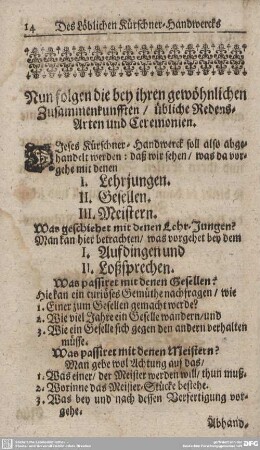 14 Des Löblichen Kürschner-Handwercks
Nun folgen die bey ihren gewöhnlichen
Zusammenkunfften / übliche Redens-
Arten und Ceremonien.
DIeses Kürschner-Handwerck soll also abge-
handelt werden: daß wir sehen / was da vor-
gehe mit denen
I. Lehrjungen.
II. Gesellen.
III. Meistern.
Was geschiehet mit denen Lehr-Jungen?
Man kan hier betrachten / was vorgehet bey dem
I. Aufdingen und
II. Loßsprechen.
Was passiret mit denen Gesellen?
Hie kan ein curiöses Gemüthe nachfragen / wie
1. Einer zum Gesellen gemacht werde?
2. Wie viel Jahre ein Geselle wandern / und
3. Wie ein Geselle sich gegen den andern verhalten
müsse.
Was passiret mit denen Meistern?
Man gebe wol Achtung auf das /
1. Was einer / der Meister werden will / thun muß.
2. Worinne das Meister-Stücke bestehe.
3. Was bey und nach dessen Verfertigung vor-
gehe.
Abhand-